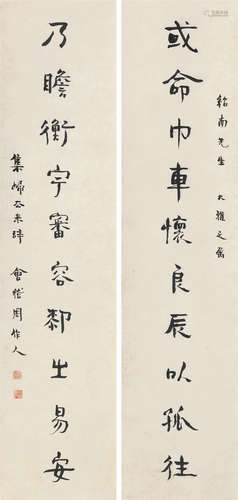 紹南先生 大雅之屬
或命巾車懷良辰以孤往
乃瞻衡宇審容厀之易安
集歸去來辭 會稽周作人